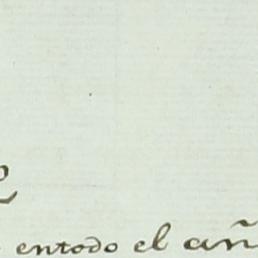 entodo el añ